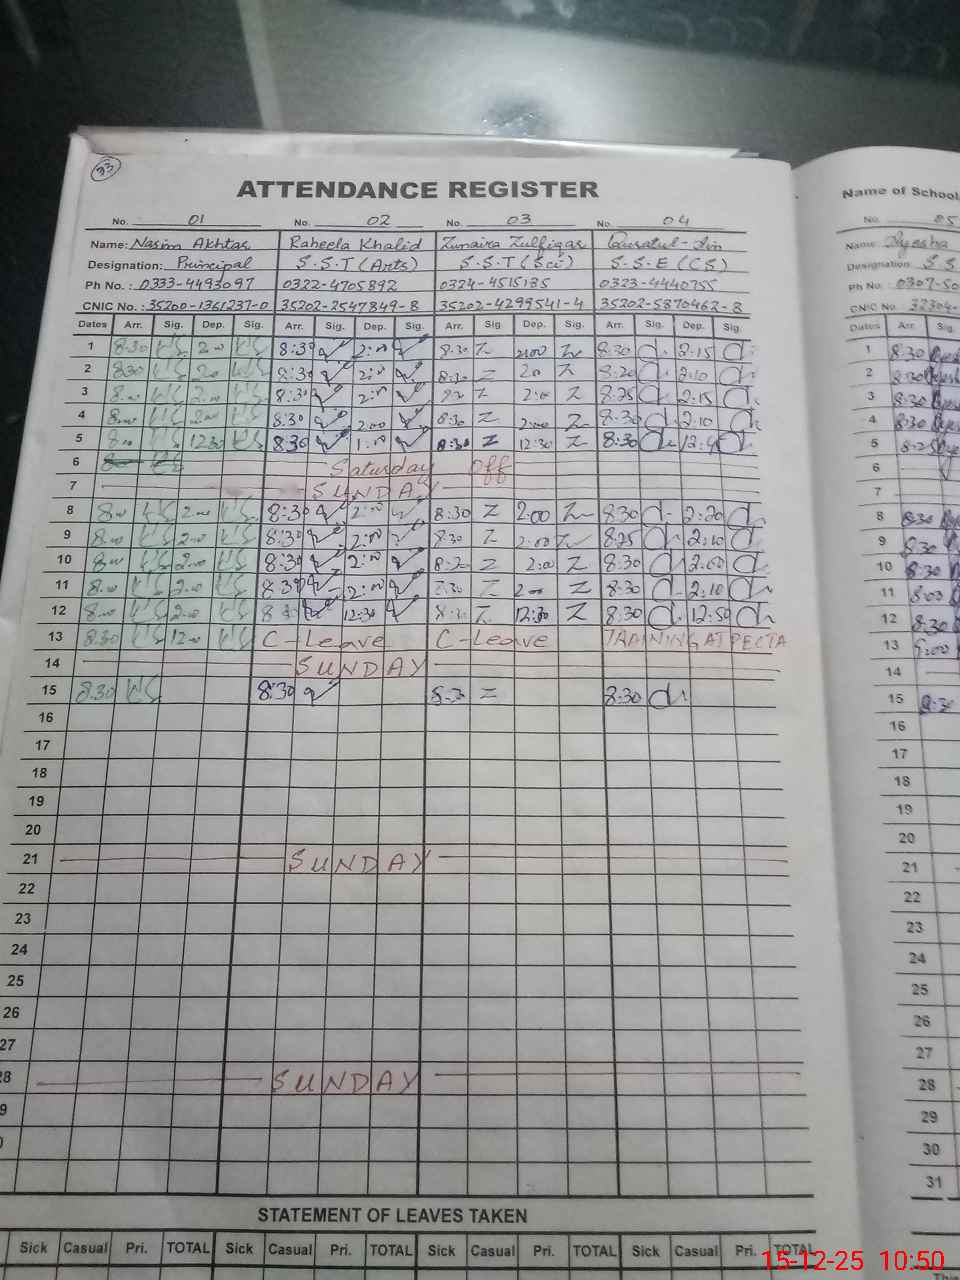 33
ATTENDANCE REGISTER
No. 01 No. 02 No. 03 No. 04
Name: Nasim Akhtar Raheela Khalid Zunaira Zulfiqar Quratul-Ain
Designation: Principal S.S.T (Arts) S.S.T (Sci) S.S.E (CS)
Ph No.: 0333-4493097 0322-4705892 0324-4515135 0323-4440755
CNIC No.: 35200-1361237-0 35202-2547849-8 35202-4299541-4 35202-5870462-8
Dates Arr. Sig. Dep. Sig. Arr. Sig. Dep. Sig. Arr. Sig Dep. Sig. Arr. Sig. Dep. Sig.
1 8:30 2:00 8:30 2:00 8:30 2:00 8:30 2:15
2 8:30 2:00 8:30 2:00 8:30 2:00 8:20 2:10
3 2:00 8:30 2:00 2:00 8:25 2:15
4 8:00 2:00 8:30 2:00 8:30 2:00 8:30 2:10
5 8:00 12:30 8:30 1:00 8:30 12:30 8:30
6 Saturday off
7 SUNDAY
8 8:00 2:00 8:30 2:00 8:30 2:00 8:30 2:20
9 8:00 2:00 8:30 2:00 8:30 2:00 8:25 2:10
10 8:00 2:00 8:30 2:00 8:30 2:00 8:30 2:00
11 8:00 2:00 8:30 2:00 2:00 8:30 2:10
12 8:00 2:00 8:30 12:30 8:30 12:30 8:30 12:50
13 8:30 12:00 C-Leave C-Leave TRAINING AT PECTA
14 SUNDAY
15 8:30 8:30 8:30 8:30
16
17
18
19
20
21 SUNDAY
22
23
24
25
26
27
28 SUNDAY
9
STATEMENT OF LEAVES TAKEN
Sick Casual Pri. TOTAL Sick Casual Pri. TOTAL Sick Casual Pri. TOTAL Sick Casual Pri. TOTAL
Name of School
No. 05
Name: Ayesha
Designation: S.S
Ph No.: 0307-50
CNIC No. 32304-
Dates Arr. Sig.
1 8:30
2 8:30
3 8:30
4 8:30
5 8:25
6
7
8 8:30
9 8:30
10 8:30
11 8:00
12 8:30
13 9:00
14
15 8:30
16
17
18
19
20
21
22
23
24
25
26
27
28
29
30
31
15-12-25 10:50